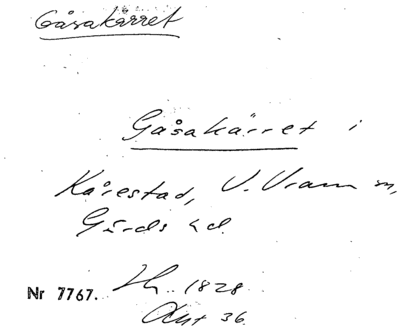 Gåsakärret
Gåsakärret i
Kårestad, V. Vram sn,
Gärds hd.
Nr 7767. Lh. 1828
Akt 36.